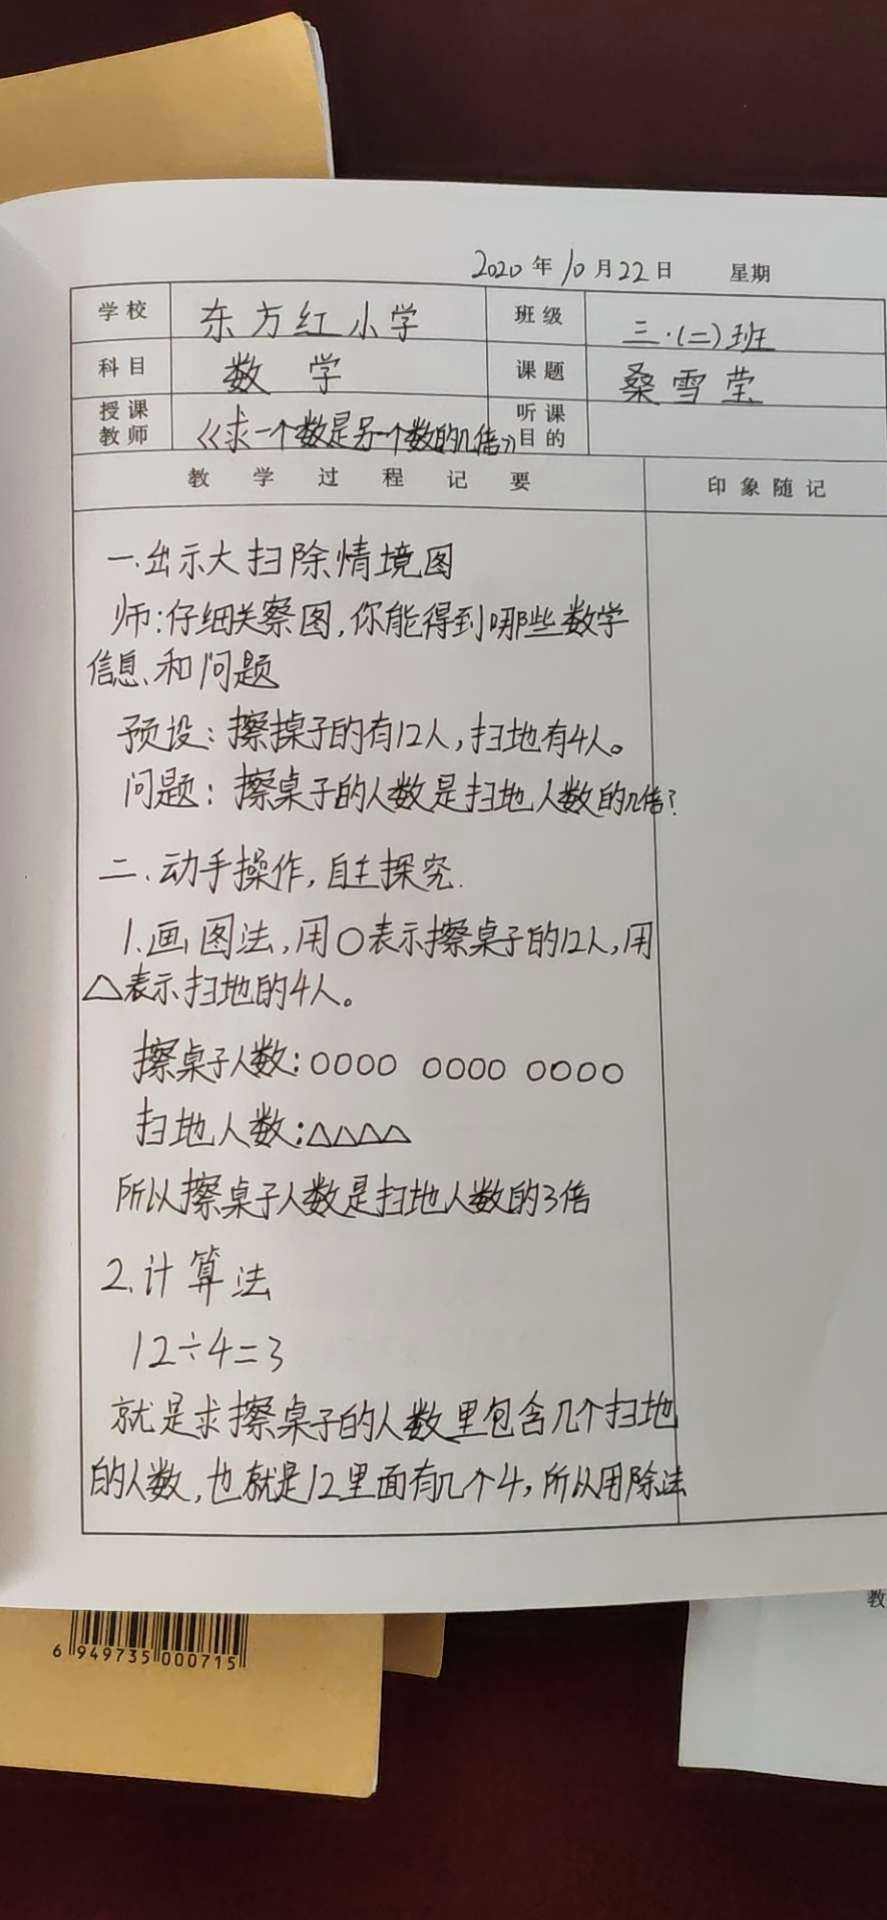 2020年10月22日 星期
学校 东方红小学 班级 三.(二)班
科目 数学 课题 桑雪莹
授课教师 《求一个数是另一个数的几倍》 听课目的
教学过程记要 印象随记
一.出示大扫除情境图
师:仔细关察图,你能得到哪些数学
信息、和问题
预设:擦桌子的有12人,扫地有4人。
问题:擦桌子的人数是扫地人数的几倍?
二.动手操作,自主探究.
1.画图法,用○表示擦桌子的12人,用
△表示扫地的4人。
擦桌子人数:○○○○ ○○○○ ○○○○
扫地人数:△△△△
所以擦桌子人数是扫地人数的3倍
2.计算法
12÷4=3
就是求擦桌子的人数里包含几个扫地
的人数,也就是12里面有几个4,所以用除法
教
6 949735 000715